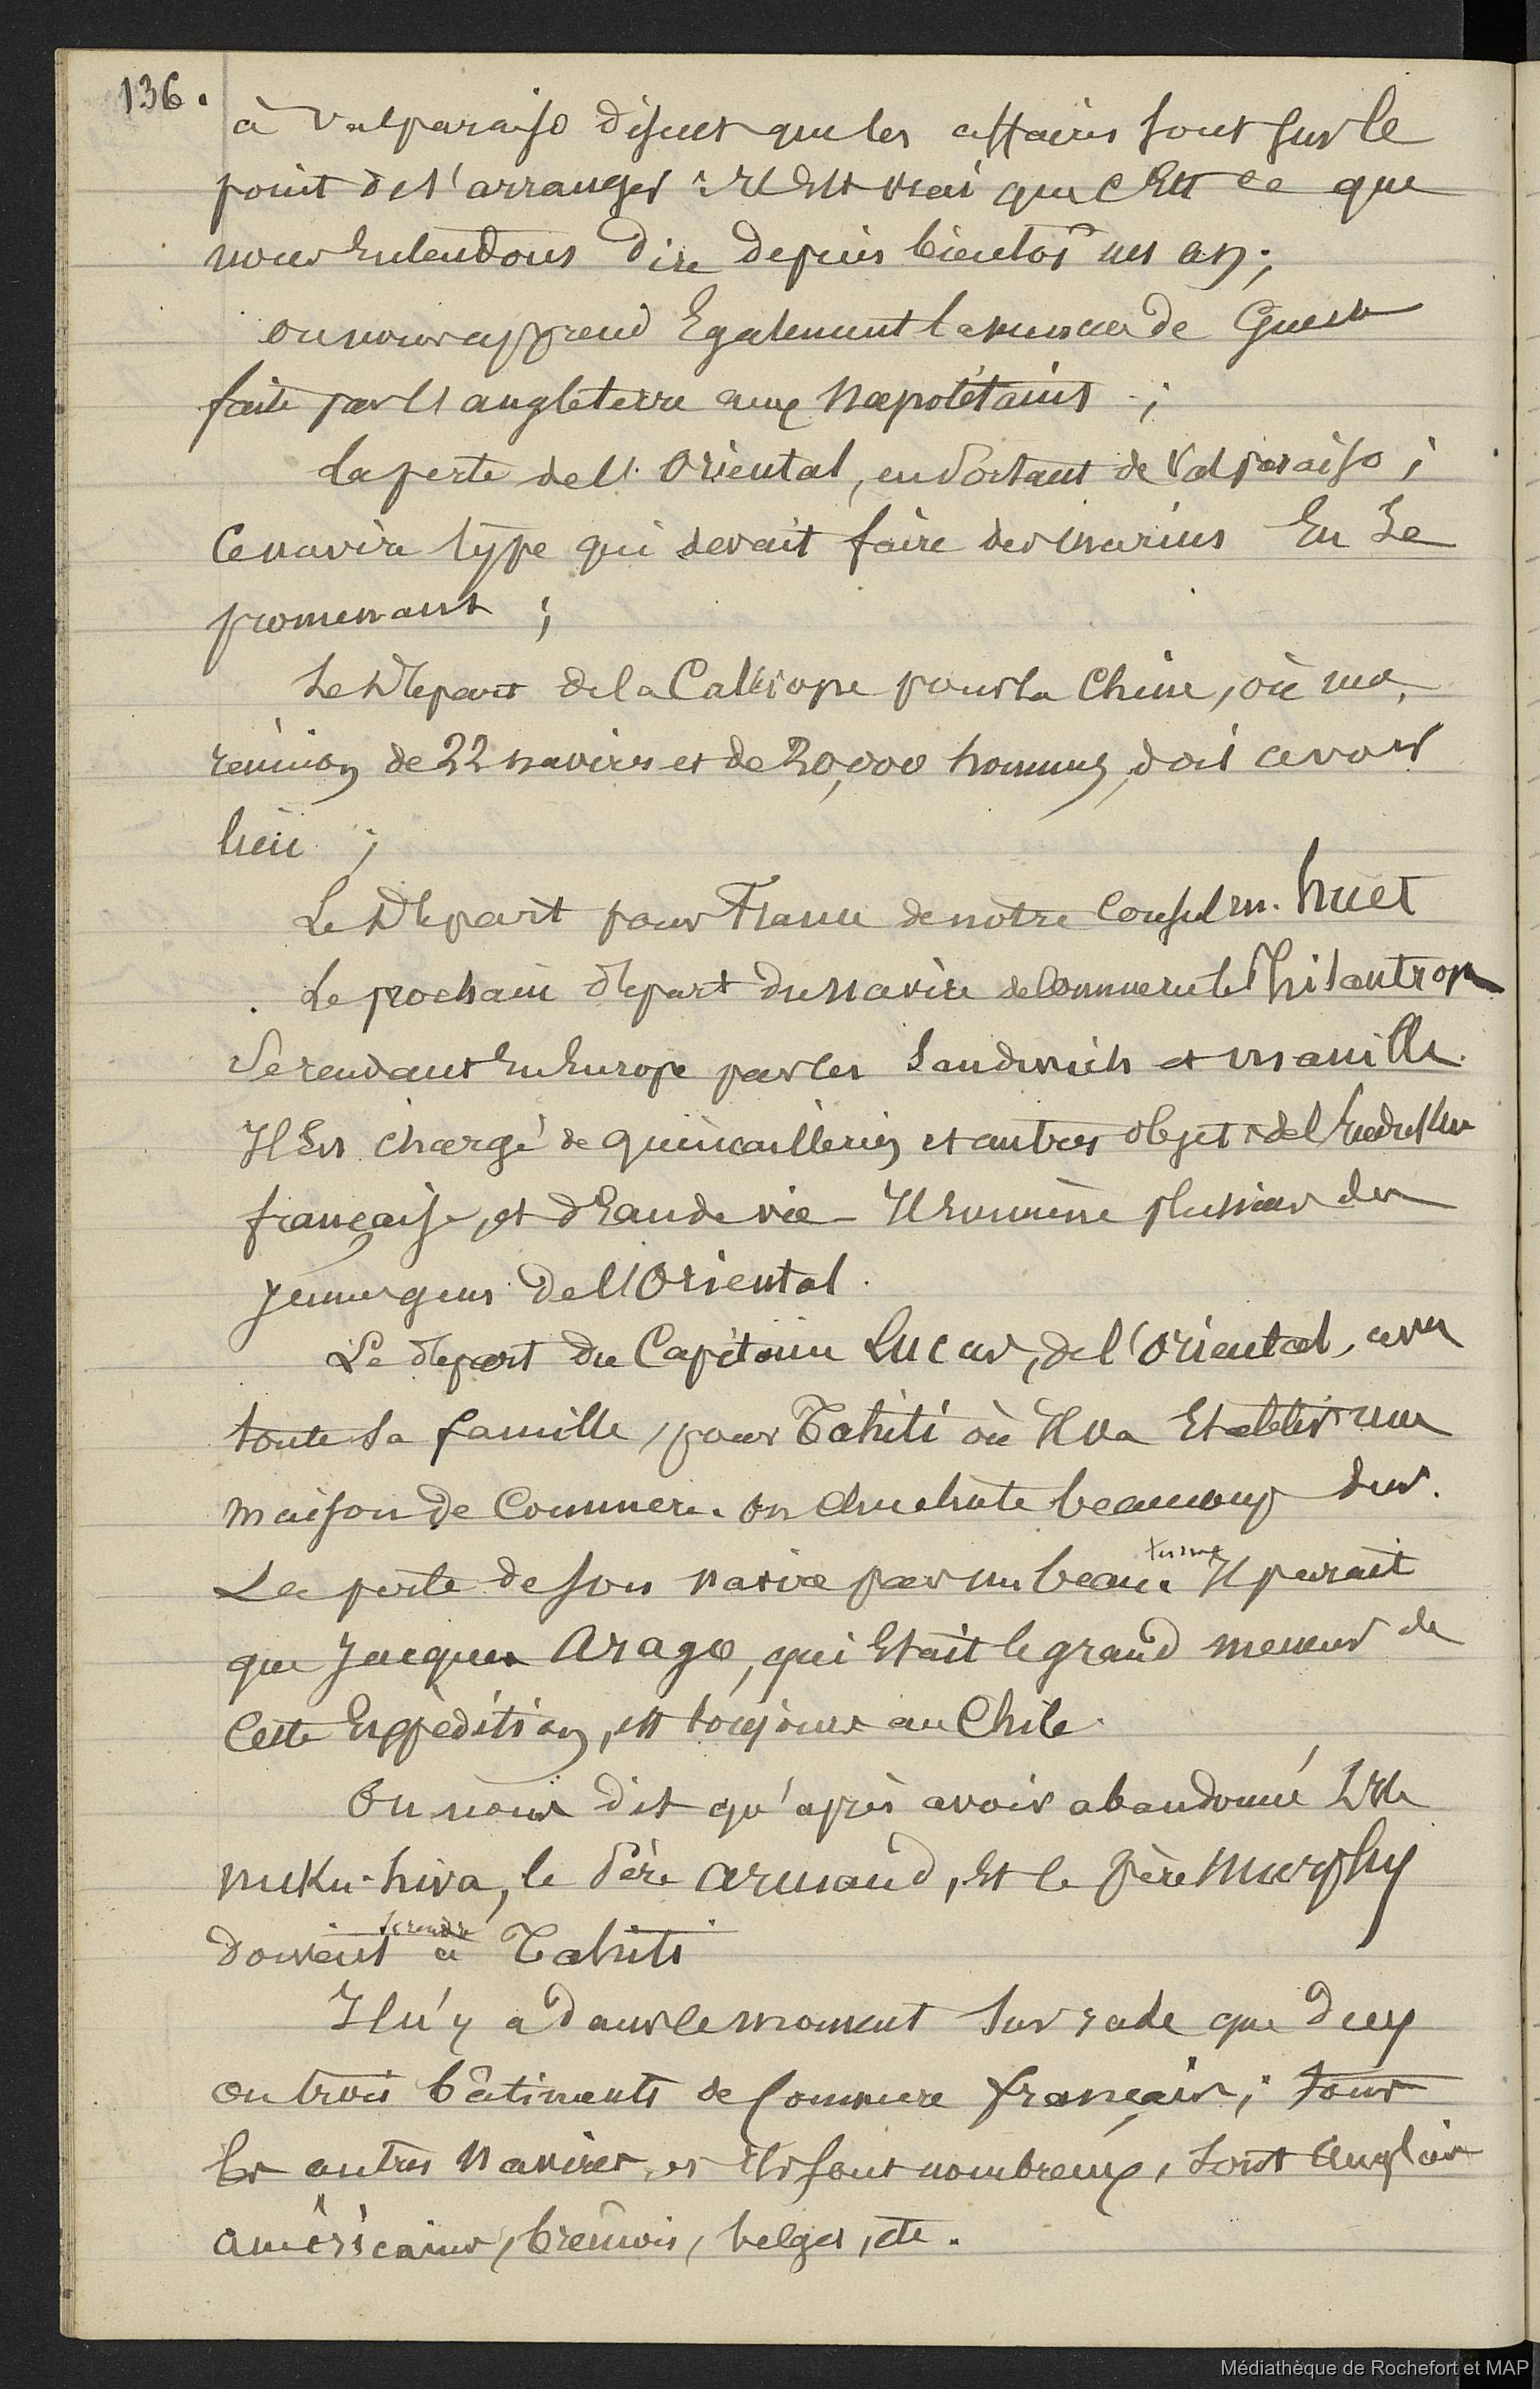 136.
à Valparaiso disent que les affaires sont sur le
point de s'arranger ; Il Est vrai que c'Est ce que
nous Entendons dire depuis bientôt un an ;
on nous apprend Egalement la menace de Guerre
faite par l'angleterre aux Napolétains ;
La perte de l'Oriental, en sortant de Valparaiso ;
Ce navire type qui devait faire des marins En se
promenant ;
Le Départ de la Calliope pour la Chine, où une
réunion de 22 navires et de 20,000 hommes, doit avoir
lieu ;
Le Départ pour France de notre Consul m. huet
Le prochain départ du navire de Commerce le Philantrope
Se rendant En Europe par les Sandwich et Manille.
Il Est chargé de quincailleries et autres objets de l'Industrie
française, et d'Eau de vie - Il Emmène plusieurs des
jeunes gens de l'Oriental.
Le départ du Capitaine Lucas, de l'Oriental, avec
toute sa famille, pour Tahiti où Il va Etablir une
maison de Commerce. on chuchote beaucoup sur
La perte de son navire par un beau tems. Il parait
que Jacques Arago, qui Etait le grand meneur de
Cette Expédition, est toujours au Chili.
On nous dit qu'après avoir abandonné L'Ile
nuku-hiva, le Père Armand, Et le père Murphy
doivent se rendre à Tahiti
Il n'y a dans le moment sur rade que deux
ou trois bâtiments de Commerce français ; tous
les autres navires, et Ils sont nombreux, sont Anglais
américains, brêmois, belges, etc.
Médiathèque de Rochefort et MAP